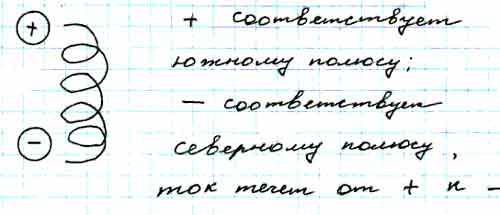 + соответствует
южному полюсу;
− соответствует
северному полюсу,
ток течет от + к −
+
−